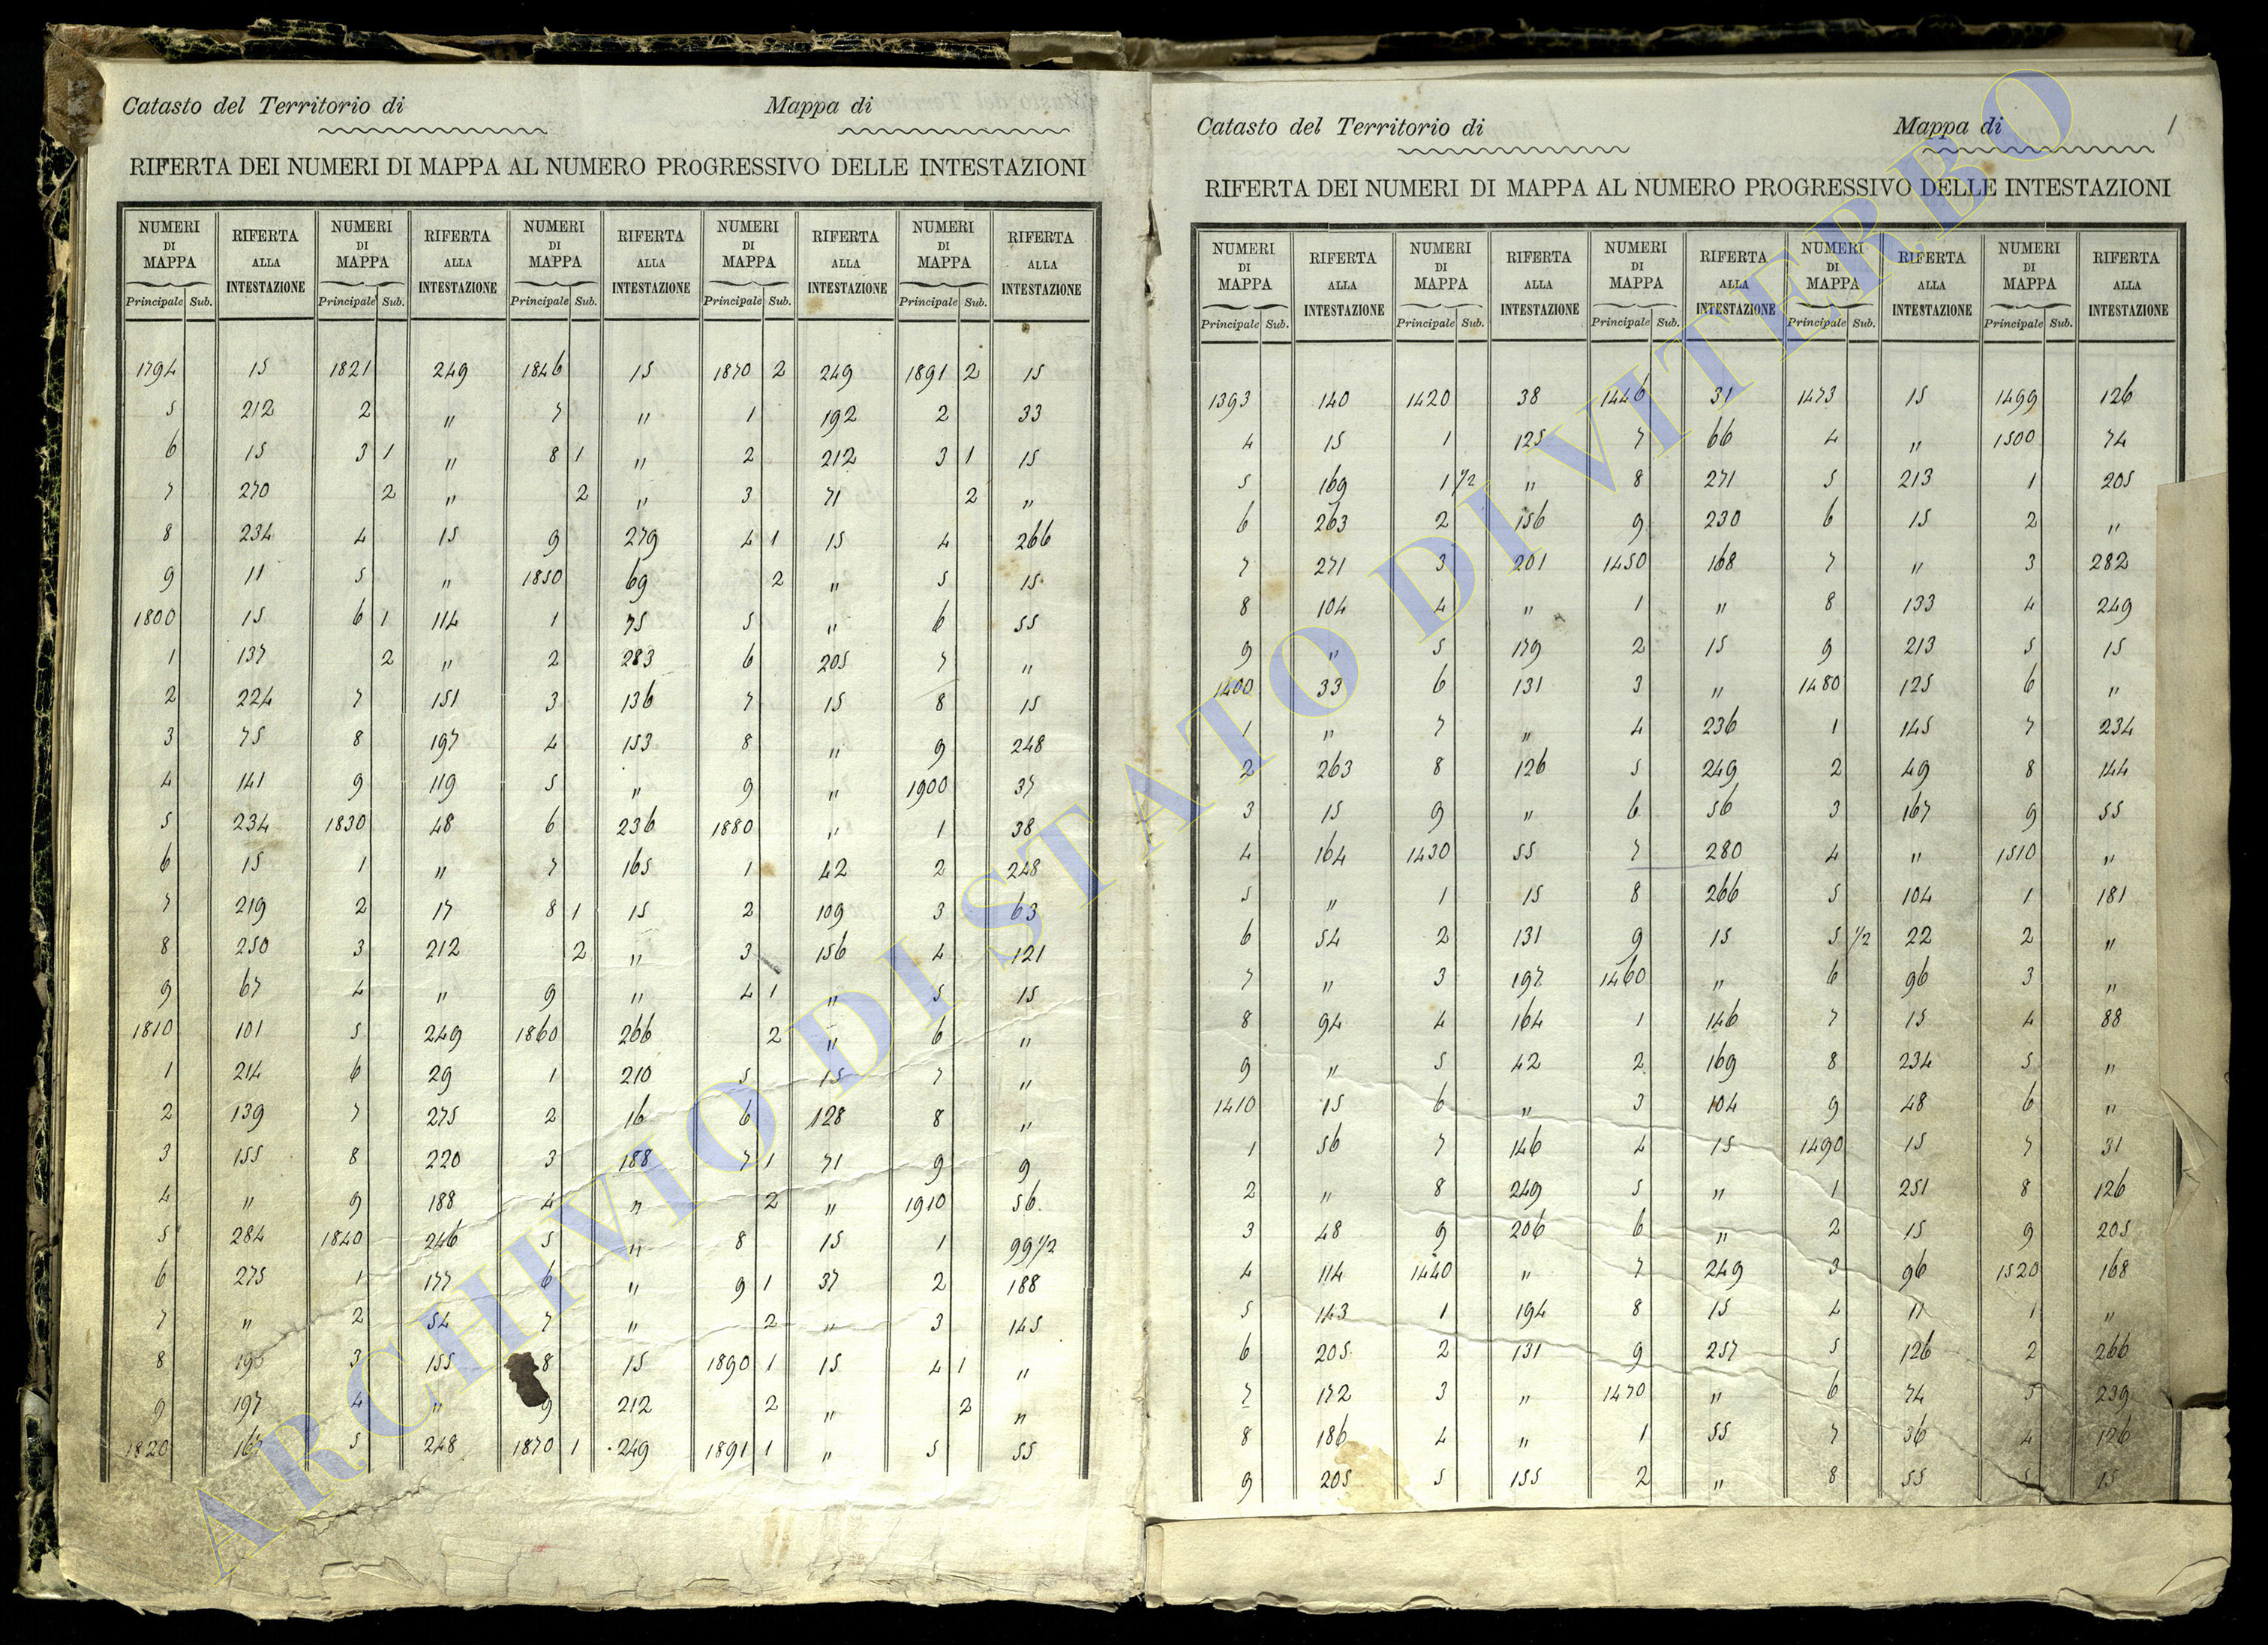 Catasto del Territorio di Mappa di
RIFERTA DEI NUMERI DI MAPPA AL NUMERO PROGRESSIVO DELLE INTESTAZIONI
NUMERI DI MAPPA RIFERTA ALLA INTESTAZIONE NUMERI DI MAPPA RIFERTA ALLA INTESTAZIONE NUMERI DI MAPPA RIFERTA ALLA INTESTAZIONE NUMERI DI MAPPA RIFERTA ALLA INTESTAZIONE NUMERI DI MAPPA RIFERTA ALLA INTESTAZIONE
Principale Sub. Principale Sub. Principale Sub. Principale Sub. Principale Sub.
1794 15 1821 249 1846 15 1870 2 249 1891 2 15
5 212 2 " 7 " 1 192 2 33
6 15 3 1 " 8 1 " 2 212 3 1 15
7 270 2 " 2 " 3 71 2 "
8 234 4 15 9 279 4 1 15 4 266
9 11 5 " 1850 69 2 " 5 15
1800 15 6 1 114 1 75 5 " 6 55
1 137 2 " 2 283 6 205 7 "
2 224 7 151 3 136 7 15 8 15
3 75 8 197 4 153 8 " 9 248
4 141 9 119 5 " 9 " 1900 37
5 234 1830 48 6 236 1880 " 1 38
6 15 1 " 7 165 1 42 2 248
7 219 2 17 8 1 15 2 109 3 63
8 250 3 212 2 " 3 156 4 121
9 67 4 " 9 " 4 1 " 5 15
1810 101 5 249 1860 266 2 " 6 "
1 214 6 29 1 210 5 15 7 "
2 139 7 275 2 16 6 128 8 "
3 155 8 220 3 188 7 1 71 9 9
4 " 9 188 4 " 2 " 1910 56
5 284 1840 246 5 " 8 15 1 99 1/2
6 275 1 177 6 " 9 1 37 2 188
7 " 2 54 7 " 2 " 3 145
8 3 155 8 15 1890 1 15 4 1 "
9 197 4 " 9 212 2 " 2 "
1820 5 248 1870 1 249 1891 1 " 5 55
Catasto del Territorio di Mappa di 1
RIFERTA DEI NUMERI DI MAPPA AL NUMERO PROGRESSIVO DELLE INTESTAZIONI
NUMERI DI MAPPA RIFERTA ALLA INTESTAZIONE NUMERI DI MAPPA RIFERTA ALLA INTESTAZIONE NUMERI DI MAPPA RIFERTA ALLA INTESTAZIONE NUMERI DI MAPPA RIFERTA ALLA INTESTAZIONE NUMERI DI MAPPA RIFERTA ALLA INTESTAZIONE
Principale Sub. Principale Sub. Principale Sub. Principale Sub. Principale Sub.
1393 140 1420 38 1446 31 1473 15 1499 126
4 15 1 125 7 66 4 " 1500 74
5 169 1 1/2 " 8 271 5 213 1 205
6 263 2 156 9 230 6 15 2 "
7 271 3 201 1450 168 7 " 3 282
8 104 4 " 1 " 8 133 4 249
9 " 5 179 2 15 9 213 5 15
1400 33 6 131 3 " 1480 125 6 "
1 " 7 " 4 236 1 145 7 234
2 263 8 126 5 249 2 49 8 144
3 15 9 " 6 56 3 167 9 55
4 164 1430 55 7 280 4 " 1510 "
5 " 1 15 8 266 5 104 1 181
6 54 2 131 9 15 5 1/2 22 2 "
7 " 3 197 1460 " 6 96 3 "
8 94 4 164 1 146 7 15 4 88
9 " 5 42 2 169 8 234 5 "
1410 15 6 " 3 104 9 48 6 "
1 56 7 146 4 15 1490 15 7 31
2 " 8 249 5 " 1 251 8 126
3 48 9 206 6 " 2 15 9 205
4 114 1440 " 7 249 3 96 1520 168
5 143 1 194 8 15 4 11 1 "
6 205 2 131 9 257 5 126 2 266
7 172 3 " 1470 " 6 74 3 239
8 186 4 " 1 55 7 36 4 126
9 205 5 155 2 " 8 55 5 15
ARCHIVIO DI STATO DI VITERBO